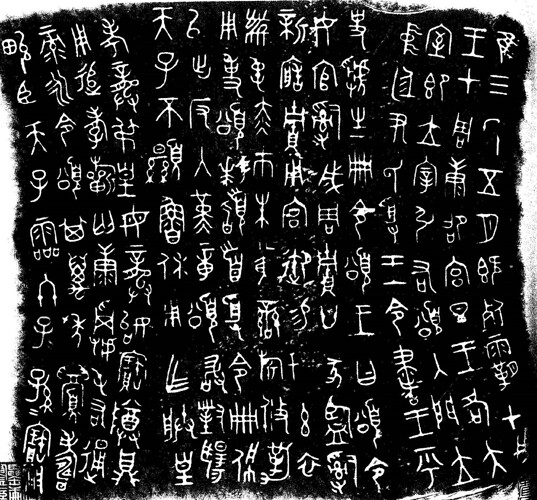 隹三年五月既死霸甲戌
王才周康卲宮旦王各大
室即立宰引右頌入門立
中廷尹氏受王令書王乎
史虢生冊令頌王曰頌令
女官𤔲成周賈廿家監𤔲
新造賈用宮御易女玄衣
黹屯赤巿朱黃䜌旂攸勒
用事頌拜稽首受令冊佩
以出反入堇章頌敢對揚
天子不顯魯休用乍朕皇
考龏弔皇母龏始寶尊鼎
用追孝祈匄康𩛥屯右通
彔永令頌其萬年眉壽
畯臣天子霝冬子孫=寶用